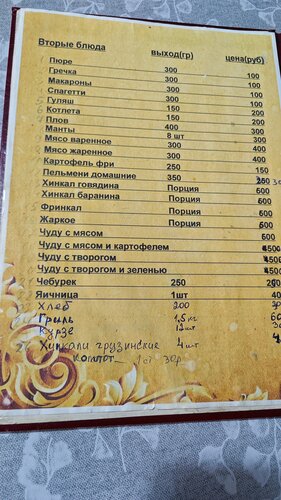 Вторые блюда выход(гр) цена(руб)
Пюре
Гречка 300 100
Макароны 300 100
Спагетти 300 100
Гуляш 150 200
Котлета 150 200
Плов 400
Манты 8 шт
Мясо варенное 300 400
Мясо жаренное 300 400
Картофель фри 250 150
Пельмени домашние 350
Хинкал говядина Порция
Хинкал баранина Порция
Фринкал Порция
Жаркое Порция
Чуду с мясом
Чуду с мясом и картофелем
Чуду с творогом
Чуду с творогом и зеленью
Чебурек 250
Яичница 1шт
Хлеб 200
Гриль 1,5кг
Курзе 12шт
Хинкали грузинские 4шт
Компот 1 ст 30р